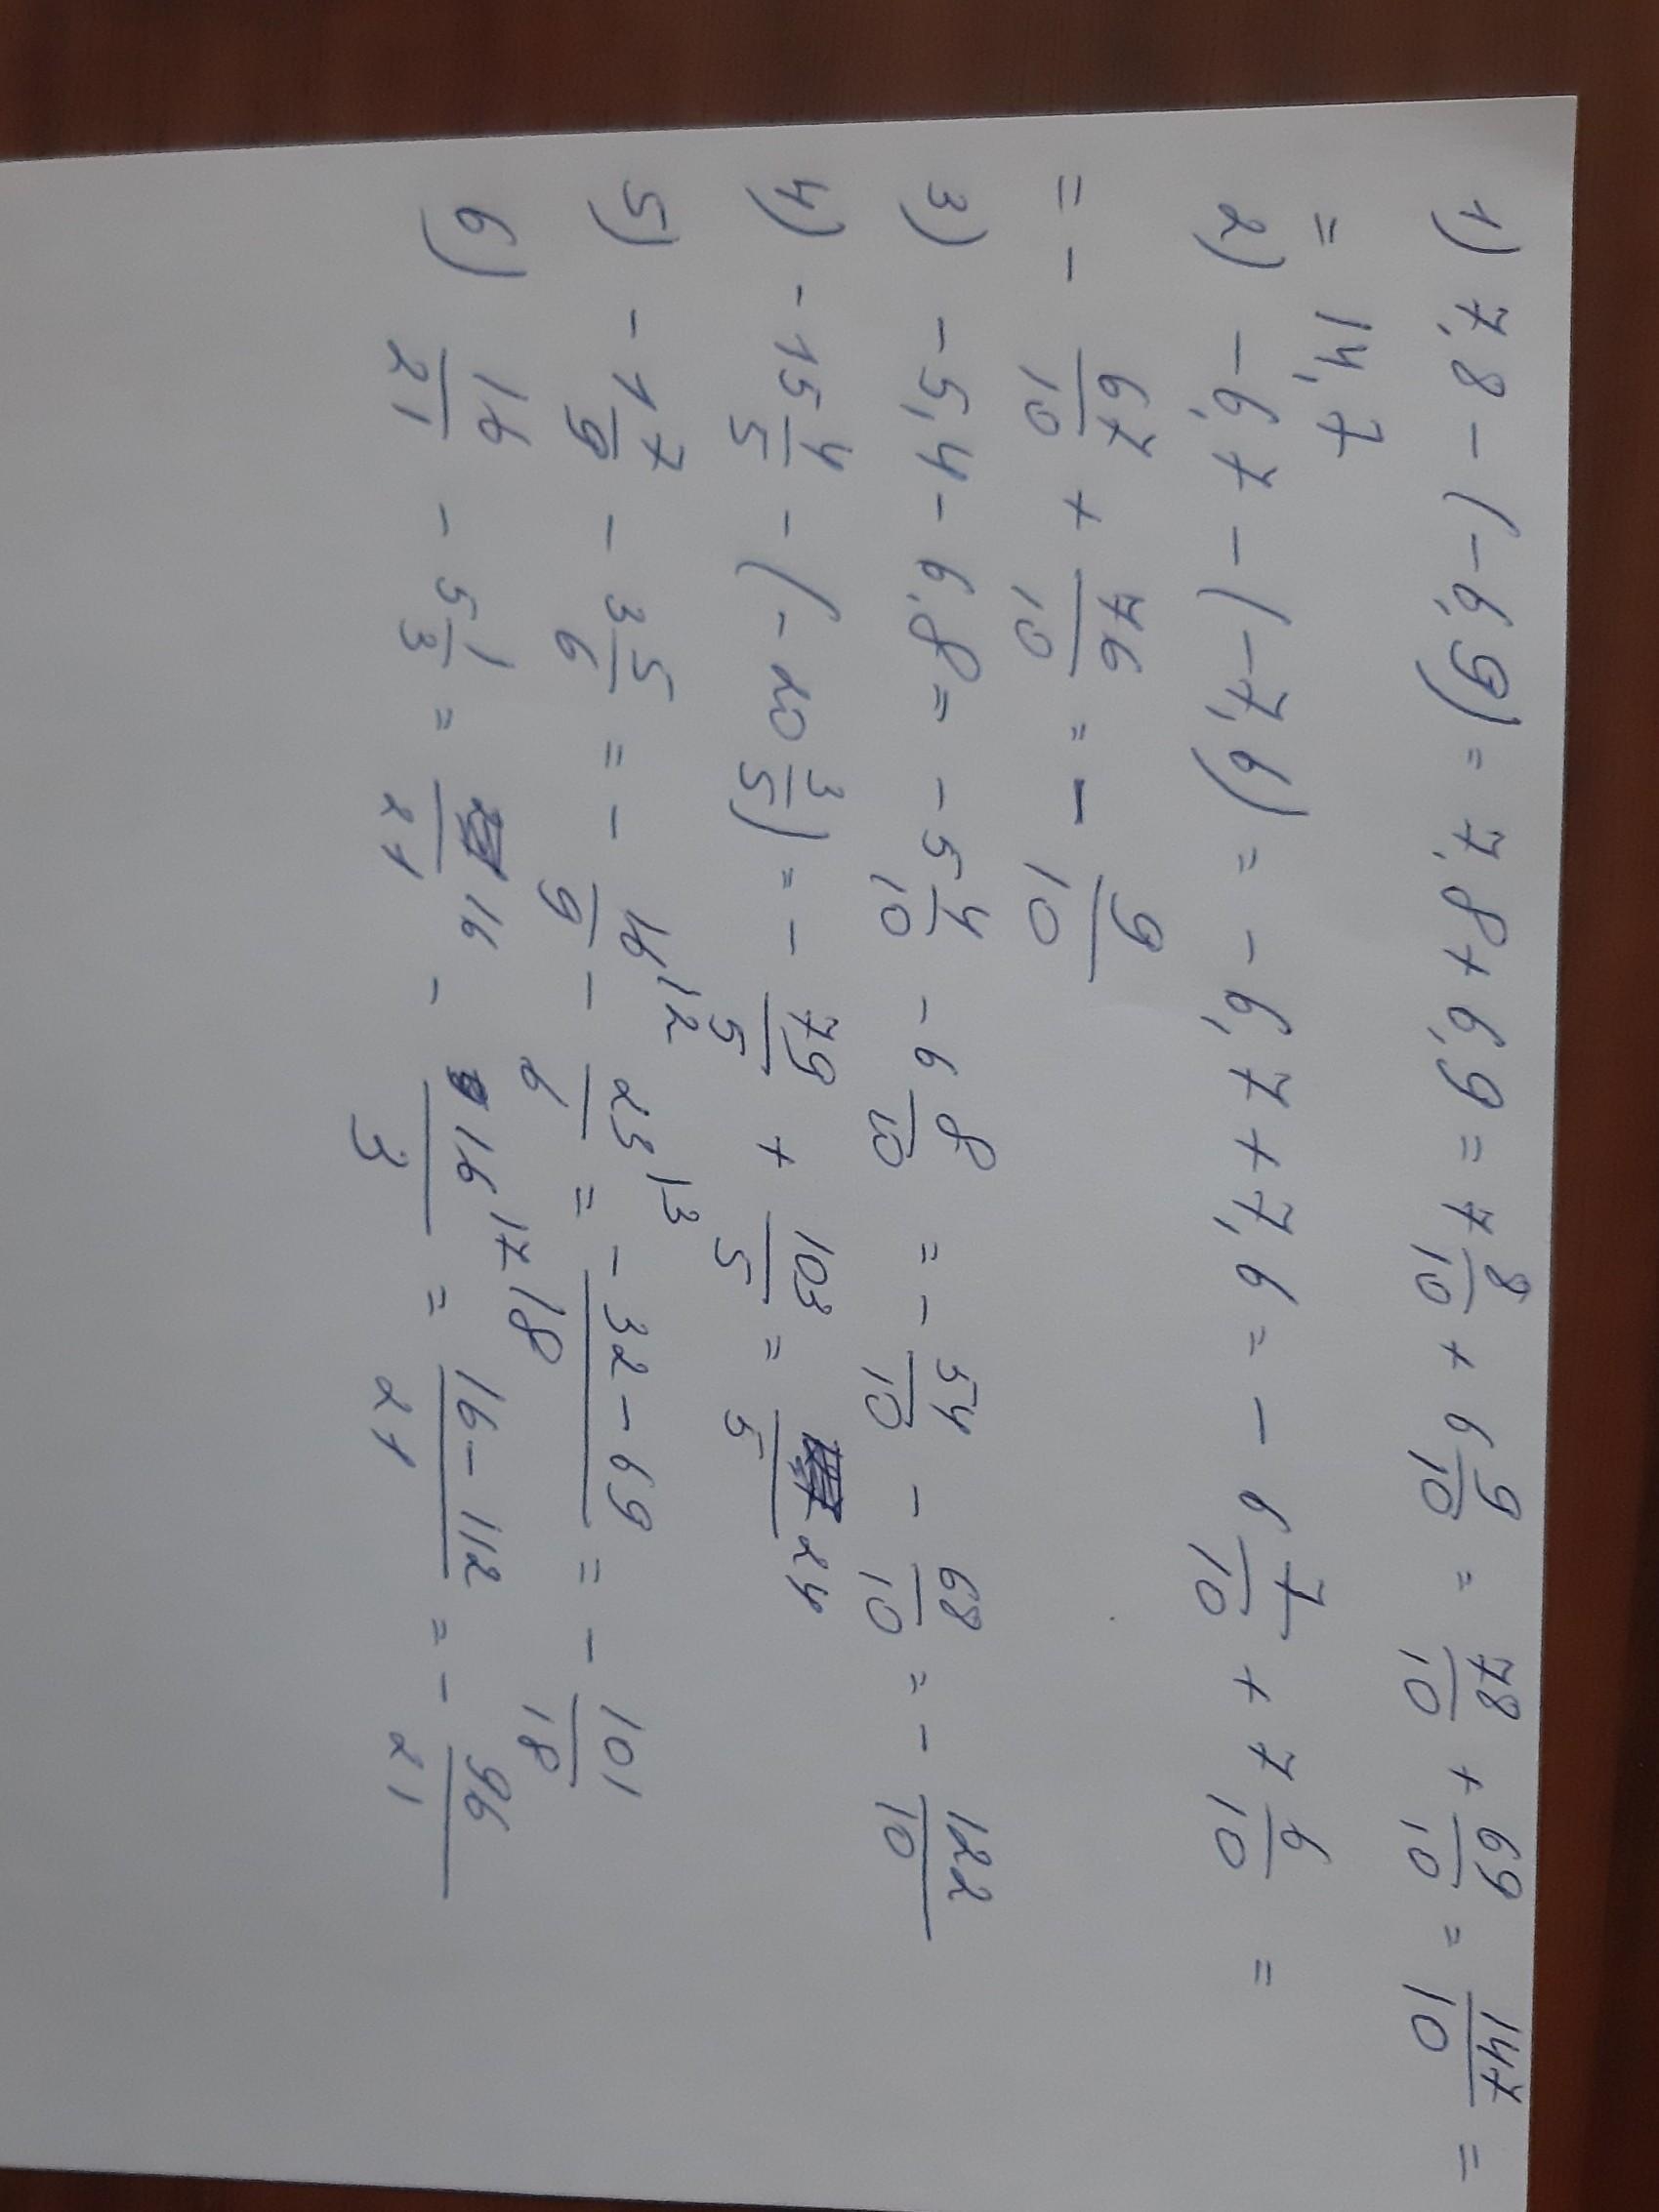 1) 7,8 - (-6,9) = 7,8 + 6,9 = 7 8/10 + 6 9/10 = 78/10 + 69/10 = 147/10 =
= 14,7
2) -6,7 - (-7,6) = -6,7 + 7,6 = -6 7/10 + 7 6/10 =
= - 67/10 + 76/10 = - 9/10
3) -5,4 - 6,8 = -5 4/10 - 6 8/10 = - 54/10 - 68/10 = - 122/10
4) -15 4/5 - (-20 3/5) = - 79/5 + 103/5 = 24/5
5) -1 7/9 - 3 5/6 = - 16/9 |2 - 23/6 |3 = - 32 - 69/18 = - 101/18
6) 16/21 - 5 1/3 = 16/21 - 16/3 |7 = 16 - 112/21 = - 96/21